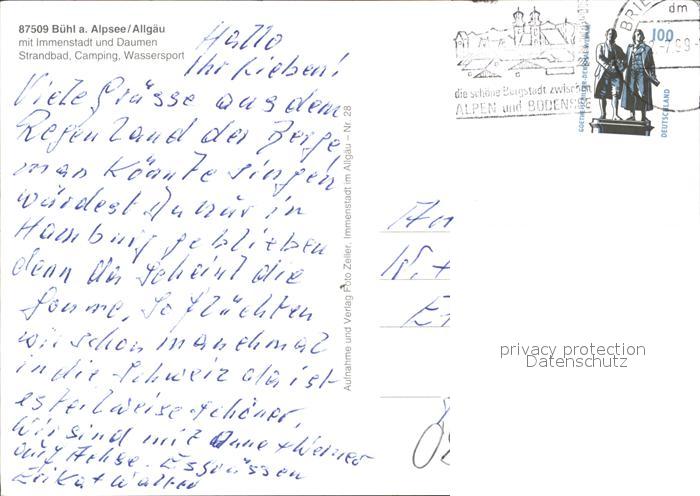 87509 Bühl a. Alpsee/Allgäu
mit Immenstadt und Daumen
Strandbad, Camping, Wassersport
Hallo
Ihr Lieben!
Viele Grüsse aus dem
Regenland der Berge,
man könnte singen
würdest Du nur in
Hamburg geblieben
denn da scheint die
Sonne, so flüchten
wir schon manchmal
in die Schweiz da ist
es teilweise schöner.
Wir sind mit Anne + Werner
auf Achse. Es grüssen
Erika + Walter
Aufnahme und Verlag Foto Zeller, Immenstadt im Allgäu – Nr. 28
die schöne Burgstadt zwischen
ALPEN und BODENSEE
100
DEUTSCHLAND
privacy protection
Datenschutz